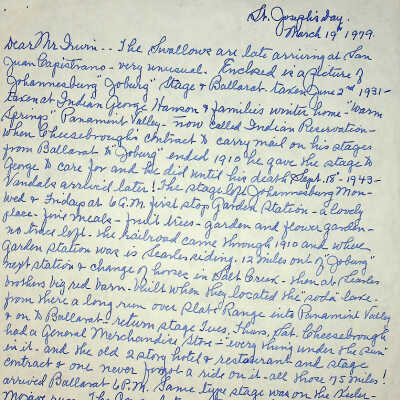 St. Joseph's day.
March 19th 1979.
Dear Mr. Irwin -- The Swallows are late arriving at San
Juan Capistrano - very unusual. Enclosed is a picture of
Johannesburg "Joburg" Stage & Ballarat - taken June 2nd 1931 -
taken at Indian George Hanson & families winter home - "Warm
Springs" Panamint Valley - now called Indian Reservation -
When Cheesebrough's contract to carry mail on his stages
from Ballarat to "Joburg" ended 1910 he gave the stage to
George to care for and he did until his death Sept. 18 - 1943 -
Vandals arrived later! The stage left Johannesburg Mon -
Wed & Friday at 6 A.M. first stop Garden Station - a lovely
place - fine meals - fruit trees - garden and flower garden -
no trees left. The railroad came through 1910 and where
Garden station was is Searles siding. 12 miles out of "Joburg"
next station & change of horses in Salt Creek - then at Searles
brothers big red barn - built when they located the "soda" lake -
from there a long run over Slate Range into Panamint Valley
& on to Ballarat - return stage Tues, Thurs, Sat. Cheesebrough
had a General Merchandise Store - "everything under the Sun"
in it - and the old 2 story hotel & restaurant and stage
contract & one never forgot a ride on it - all those 75 miles!
arrived Ballarat 6 P.M. Same type stage was on the Keeler -